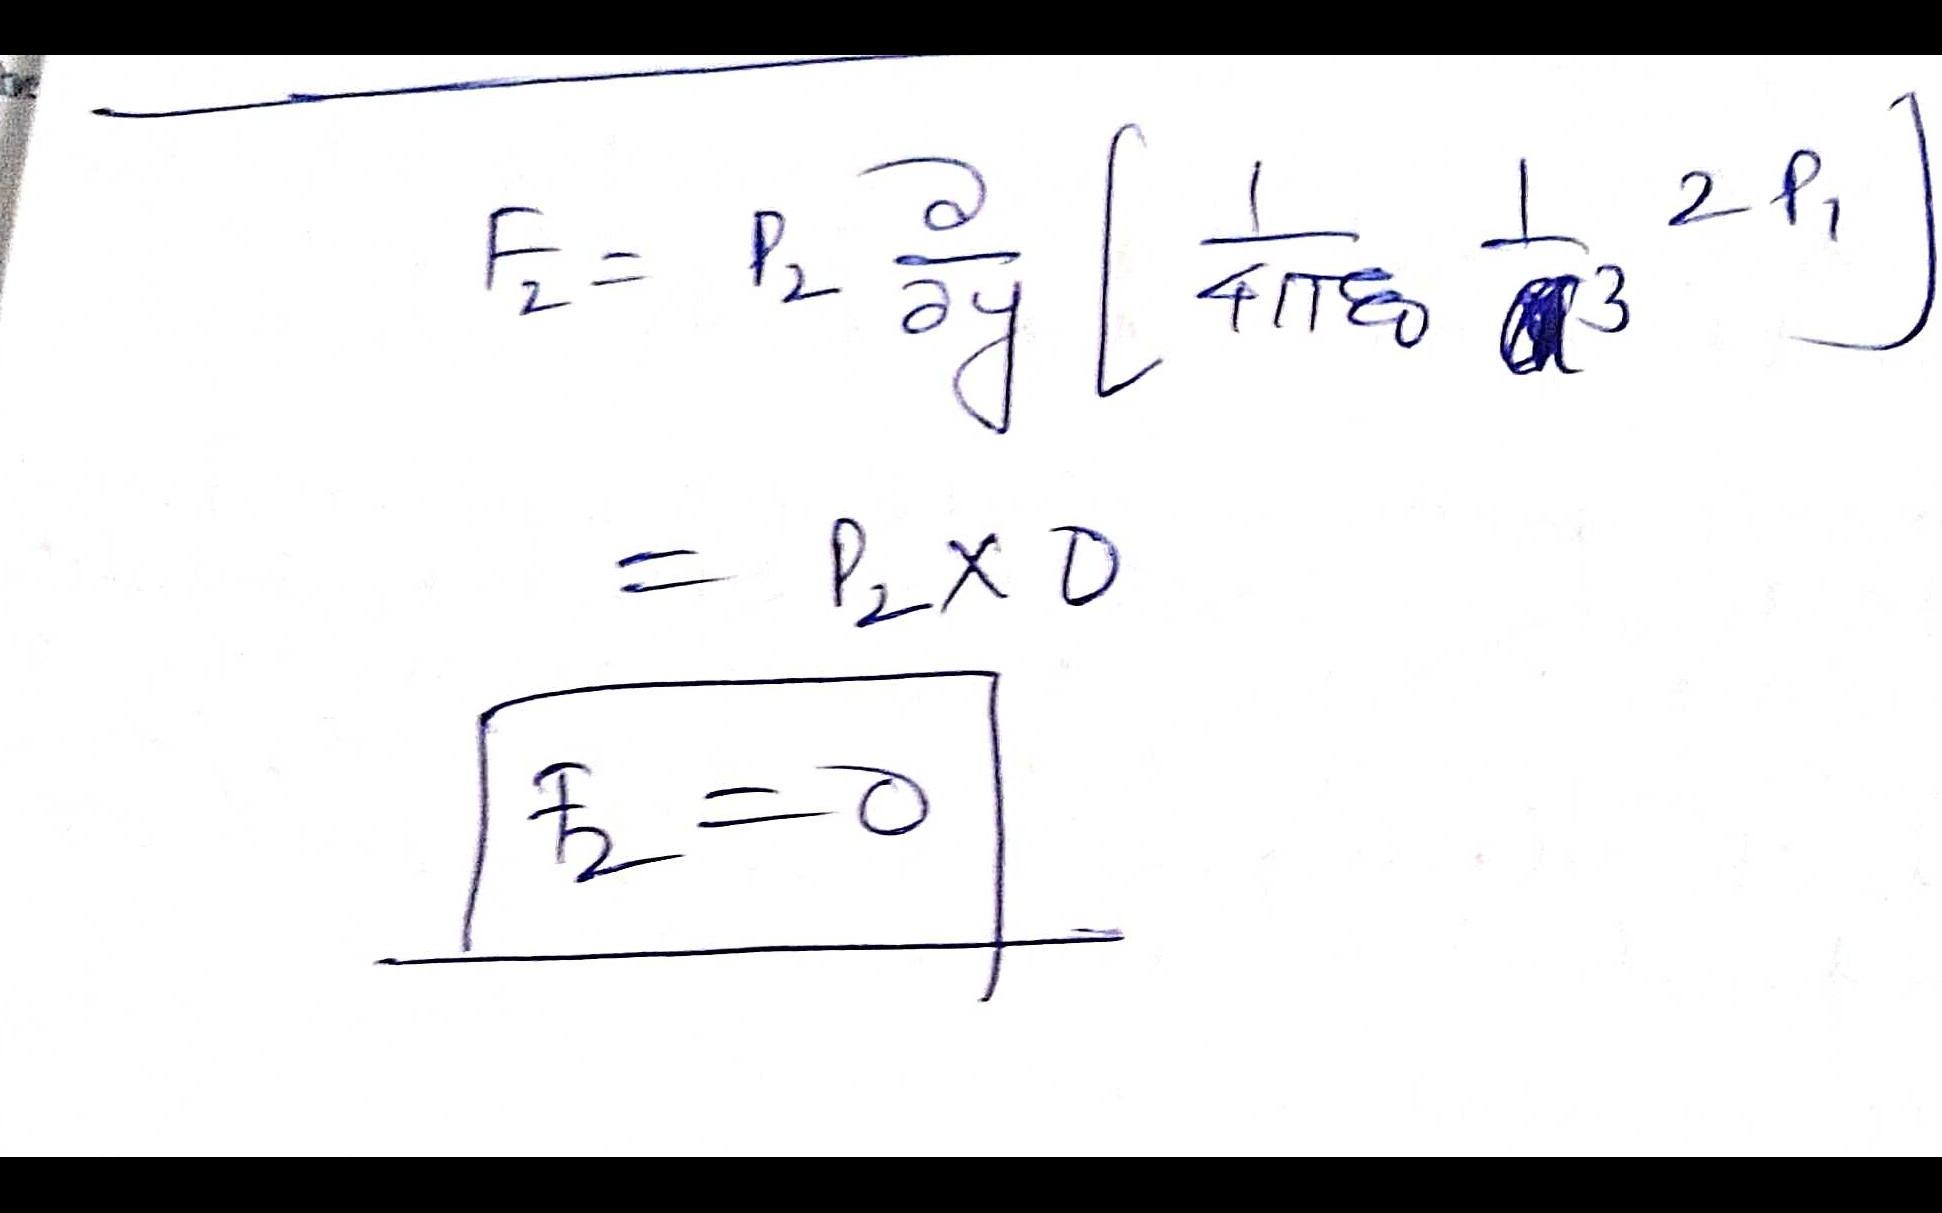 F₂ = P₂ ∂/∂y [ 1/4πε₀ 1/x³ 2P₁ ]
= P₂ × 0
F₂ = 0